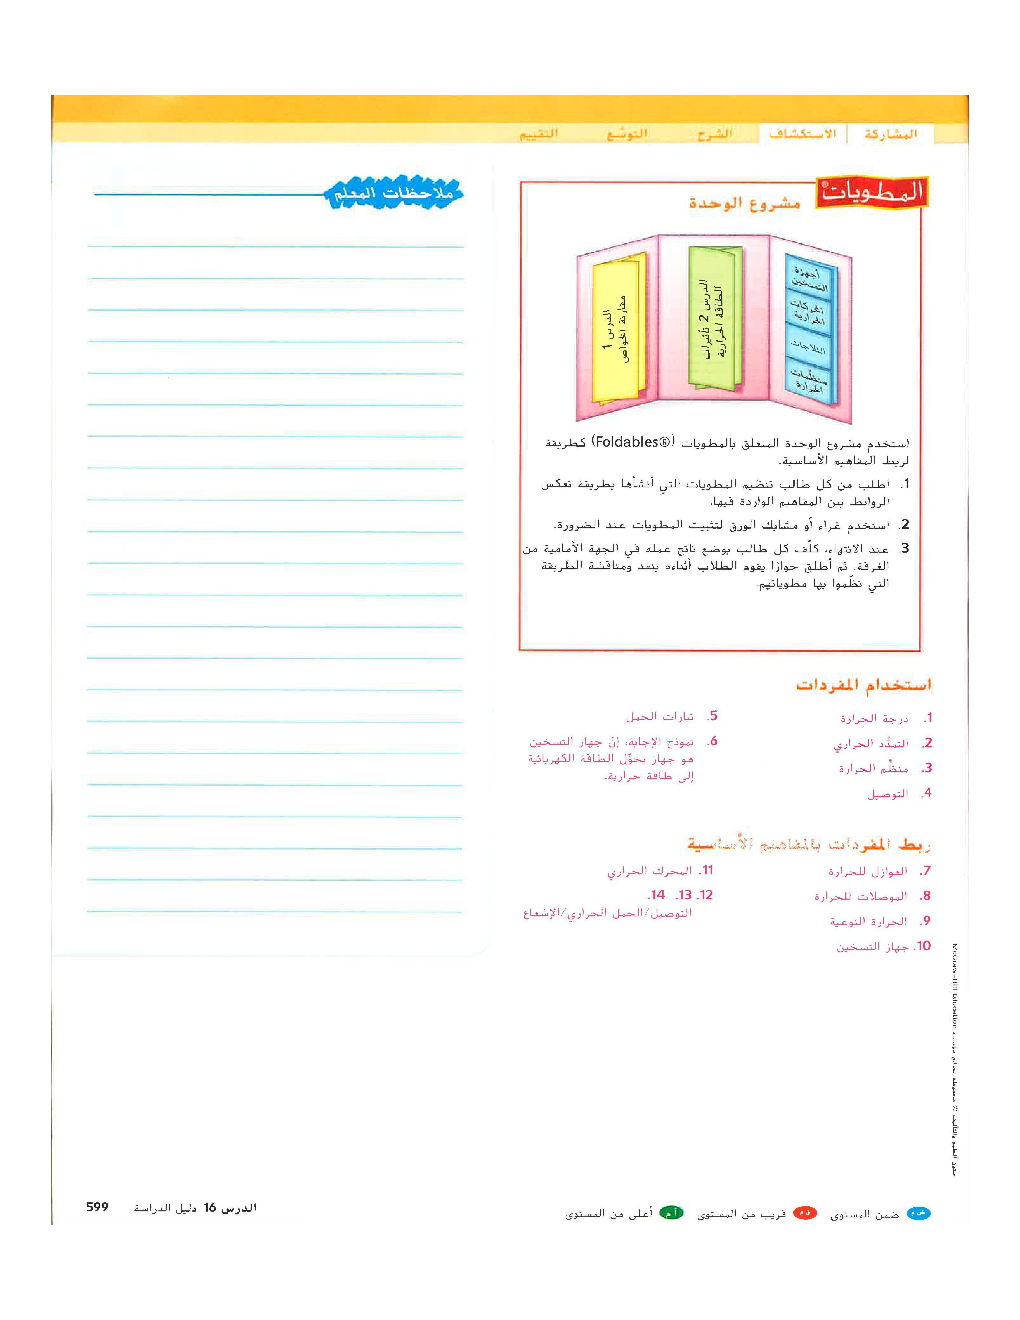 المشاركة
الاستكشاف
الشرح
التوسّع
التقييم
المطويات®
مشروع الوحدة
أجهزة
التسخين
المحركات
الحرارية
الثلاجات
منظّمات
الحرارة
الدرس 2 تأثيرات
الطاقة الحرارية
الدرس 1
مقارنة الخواص
استخدم مشروع الوحدة المتعلق بالمطويات (Foldables®) كطريقة
لربط المفاهيم الأساسية.
1. اطلب من كل طالب تنظيم المطويات التي أنشأها بطريقة تعكس
الروابط بين المفاهيم الواردة فيها.
2. استخدم غراء أو مشابك الورق لتثبيت المطويات عند الضرورة.
3. عند الانتهاء، كلّف كل طالب بوضع ناتج عمله في الجهة الأمامية من
الغرفة. ثم أطلق حوارًا يقوم الطلاب أثناءه بنقد ومناقشة الطريقة
التي نظّموا بها مطوياتهم.
ملاحظات المعلم
استخدام المفردات
1. درجة الحرارة
2. التمدّد الحراري
3. منظّم الحرارة
4. التوصيل
5. تيارات الحمل
6. نموذج الإجابة، إنّ جهاز التسخين
هو جهاز يحوّل الطاقة الكهربائية
إلى طاقة حرارية.
ربط المفردات بالمفاهيم الأساسية
7. العوازل للحرارة
8. الموصلات للحرارة
9. الحرارة النوعية
10. جهاز التسخين
11. المحرك الحراري
12. 13. 14.
التوصيل/الحمل الحراري/الإشعاع
حقوق الطبع والتأليف © محفوظة لصالح مؤسسة McGraw-Hill Education
ض م ضمن المستوى
ق م قريب من المستوى
أ م أعلى من المستوى
الدرس 16 دليل الدراسة 599